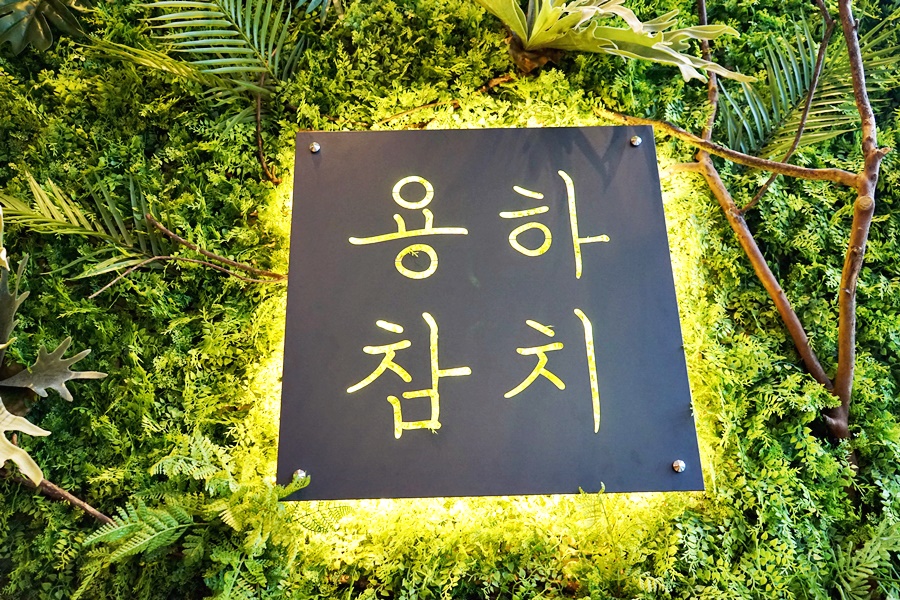 용하
참치